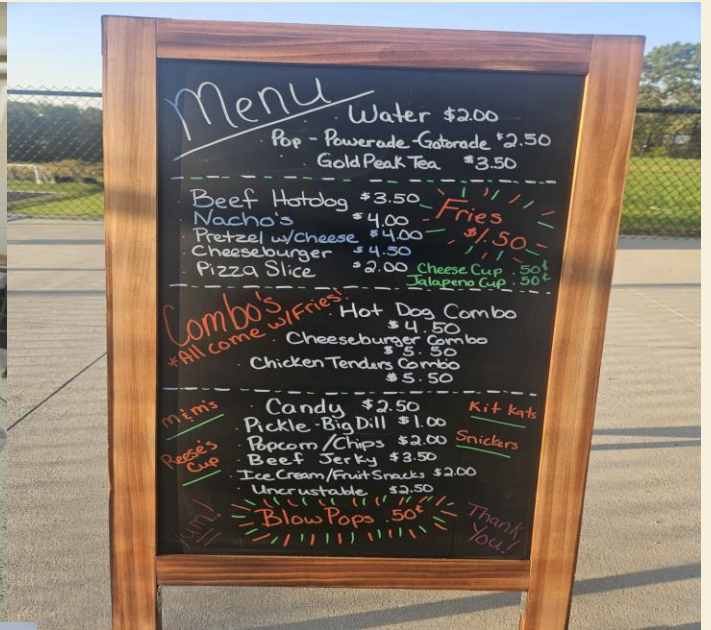 Menu
Water $2.00
Pop - Powerade - Gatorade $2.50
Gold Peak Tea $3.50
Beef Hotdog $3.50
Nacho's $4.00
Pretzel w/Cheese $4.00
Cheeseburger $4.50
Pizza Slice $2.00
Fries
$1.50
Cheese Cup .50¢
Jalapeno Cup .50¢
Combo's
*All come w/Fries!
Hot Dog Combo
$4.50
Cheeseburger Combo
$5.50
Chicken Tenders Combo
$5.50
m&m's
Reese's
Cup
Candy $2.50
Pickle - Big Dill $1.00
Popcorn/Chips $2.00
Beef Jerky $3.50
Ice Cream/Fruit Snacks $2.00
Uncrustable $2.50
Kit Kats
Snickers
Yum!
Blow Pops .50¢
Thank
You!